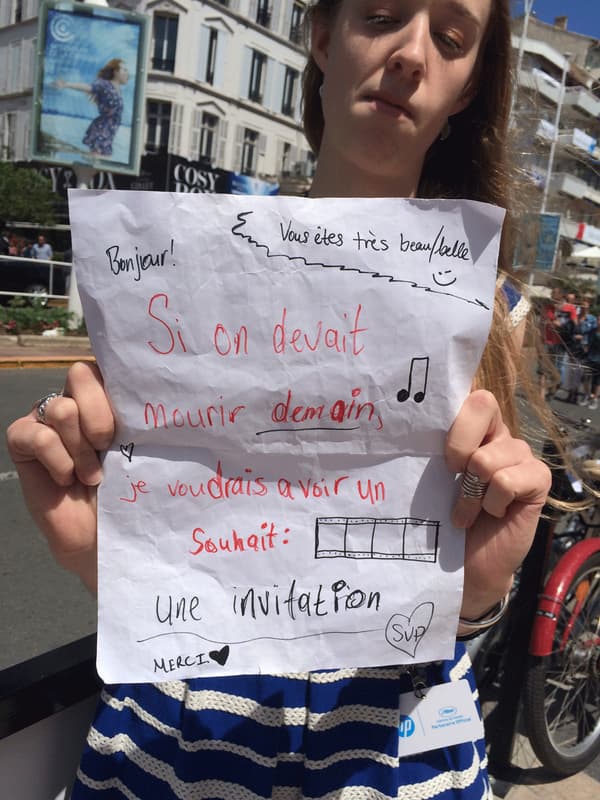 COSY
Vous êtes très beau/belle
Bonjour!
Si on devait
mourir demain,
je voudrais avoir un
souhait:
une invitation
SVP
MERCI
hp